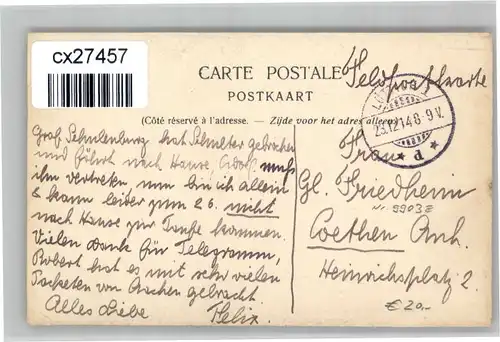 cx27457
CARTE POSTALE
POSTKAART
(Côté réservé à l'adresse. — Zijde voor het adres alleen)
Feldpostkarte
23.12.14.8-9V.
* d *
Graf Schulenburg hat Schulter gebrochen
und fährt nach Hause, Adolf muss
ihn vertreten, nun bin ich allein
& kann leider zum 26. nicht
nach Hause zur Taufe kommen.
Vielen Dank für Telegramm,
Robert hat es mit sehr vielen
Packeten von Aachen gebracht.
Alles Liebe
Felix.
Frau
Gl. Friedheim
Nr 9903
Coethen Anh.
Heinrichsplatz 2.
€ 20,-